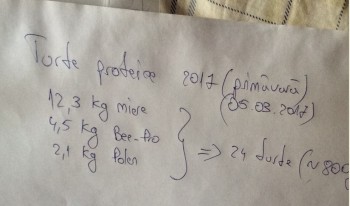 Turte proteice 2017 (primăvară)
(05.03.2017)
12,3 kg miere
4,5 kg Bee-Pro
2,1 kg Polen
=> 24 turte (~800g